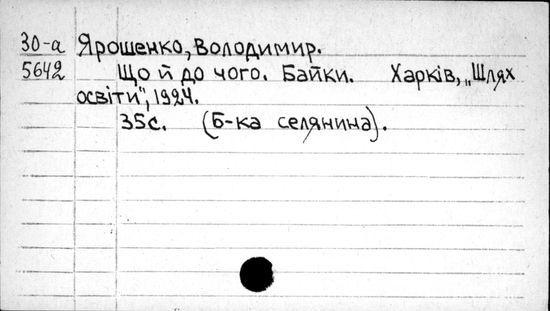 30-а Ярошенко, Володимир.
5642 Що й до чого. Байки. Харків, „Шлях
освіти", 1924.
35с. (Б-ка селянина).